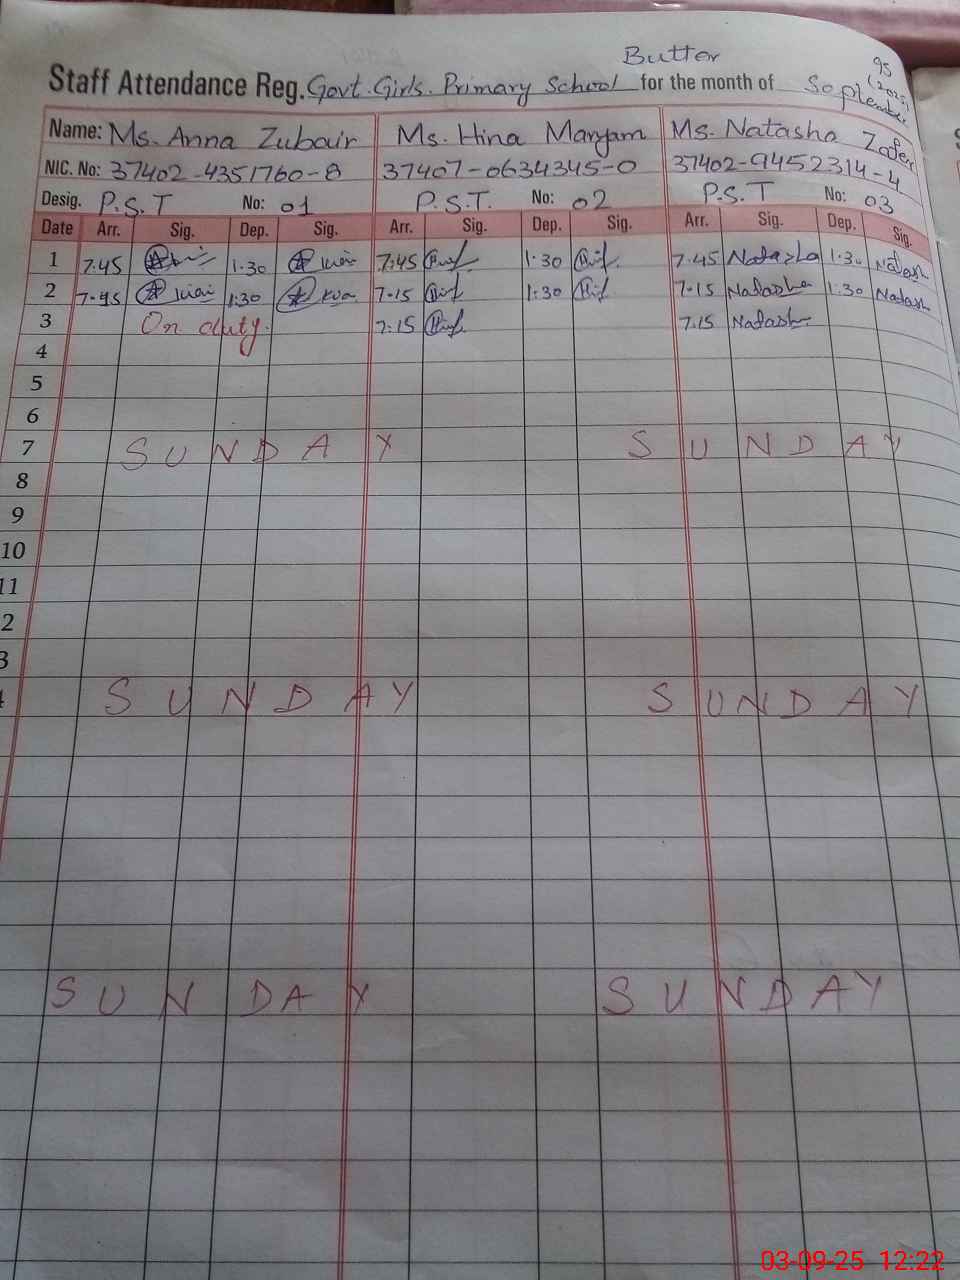 Butter
95
Staff Attendance Reg. Govt. Girls. Primary School for the month of September (2025)
Name: Ms. Anna Zubair Ms. Hina Maryam Ms. Natasha Zafer
NIC. No: 37402-4351760-8 37407-0634345-0 37402-9452314-4
Desig. P.S.T No: 01 P.S.T. No: 02 P.S.T No: 03
Date Arr. Sig. Dep. Sig. Arr. Sig. Dep. Sig. Arr. Sig. Dep. Sig.
1 7.45 1.30 7:45 1:30 7.45 Natasha 1.30 Natash
2 7.45 1:30 7.15 1:30 7.15 Natasha 1:30 Natash
3 On duty. 7:15 7.15 Natash
4
5
6
7 SUNDAY SUNDAY
8
9
10
11
2
3
SUNDAY SUNDAY
SUNDAY SUNDAY
03-09-25 12:22